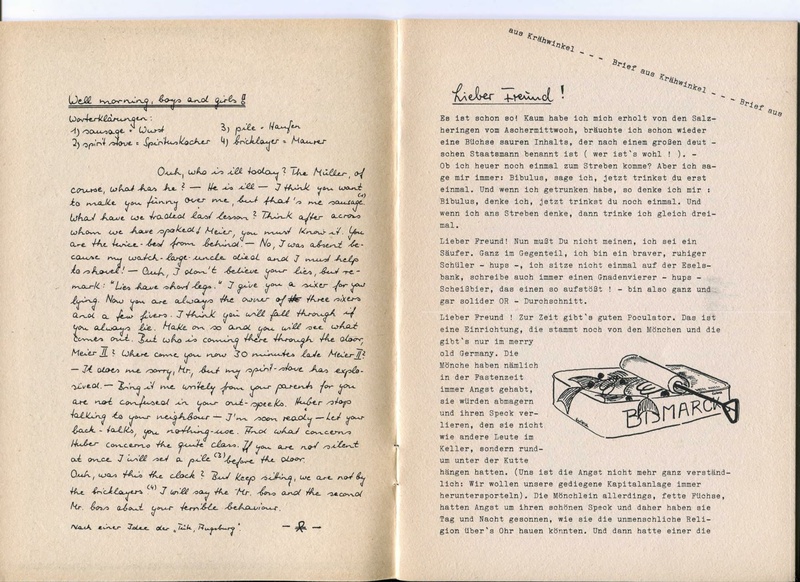 Well morning, boys and girls!!
Worterklärungen:
1) sausage = Wurst 3) pile = Haufen
2) spirit stove = Spirituskocher 4) bricklayer = Maurer
Ouh, who is ill today? The Müller, of
course, what has he? — He is ill — I think you want
to make you funny over me, but that's me sausage (1)
What have we traded last lesson? Think after across
whom we have spoked! Meier, you must know it. You
are the twice-best from behind — No, I was absent be-
cause my watch-large-uncle died and I must help
to shovel! — Ouh, I don't believe your lies, but re-
mark: "Lies have short legs." I give you a sixer for your
lying. Now you are always the owner of three sixers
and a few fivers. I think you will fall through if
you always lie. Make on so and you will see what
comes out. But who is coming there through the door,
Meier II? Where come you now 30 minutes late Meier II?
— It does me sorry, Mr, but my spirit-stove has explo-
sived. — Bring it me writely from your parents for you
are not confused in your out-speeks. Huber stop
talking to your neighbour — I'm soon ready — Let your
back-talks, you nothing-use. And what concerns
Huber concerns the quite class. If you are not silent
at once I will set a pile (3) before the door.
Ouh, was this the clock? But keep sitting, we are not by
the bricklayers (4) I will say the Mr. boss and the second
Mr. boss about your terrible behaviour.
Nach einer Idee der „Tüte, Augsburg"
aus Krähwinkel - - - Brief aus Krähwinkel - - - Brief aus
Lieber Freund!
Es ist schon so! Kaum habe ich mich erholt von den Salz-
heringen vom Aschermittwoch, bräuchte ich schon wieder
eine Büchse sauren Inhalts, der nach einem großen deut -
schen Staatsmann benannt ist ( wer ist`s wohl ! ). -
Ob ich heuer noch einmal zum Streben komme? Aber ich sa-
ge mir immer: Bibulus, sage ich, jetzt trinkst du erst
einmal. Und wenn ich getrunken habe, so denke ich mir :
Bibulus, denke ich, jetzt trinkst du noch einmal. Und
wenn ich ans Streben denke, dann trinke ich gleich drei-
mal.
Lieber Freund! Nun mußt Du nicht meinen, ich sei ein
Säufer. Ganz im Gegenteil, ich bin ein braver, ruhiger
Schüler - hups -, ich sitze nicht einmal auf der Esels-
bank, schreibe auch immer einen Gnadenvierer - hups -
Scheißbier, das einen so aufstößt! - bin also ganz und
gar solider OR - Durchschnitt.
Lieber Freund ! Zur Zeit gibt`s guten Poculator. Das ist
eine Einrichtung, die stammt noch von den Mönchen und die
gibt`s nur im merry
old Germany. Die
Mönche haben nämlich
in der Fastenzeit
immer Angst gehabt,
sie würden abmagern
und ihren Speck ver-
lieren, den sie nicht
wie andere Leute im
Keller, sondern rund-
um unter der Kutte
BISMARCK
hängen hatten. (Uns ist die Angst nicht mehr ganz verständ-
lich: Wir wollen unsere gediegene Kapitalanlage immer
heruntersporteln). Die Mönchlein allerdings, fette Füchse,
hatten Angst um ihren schönen Speck und daher haben sie
Tag und Nacht gesonnen, wie sie die unmenschliche Reli-
gion über`s Ohr hauen könnten. Und dann hatte einer die